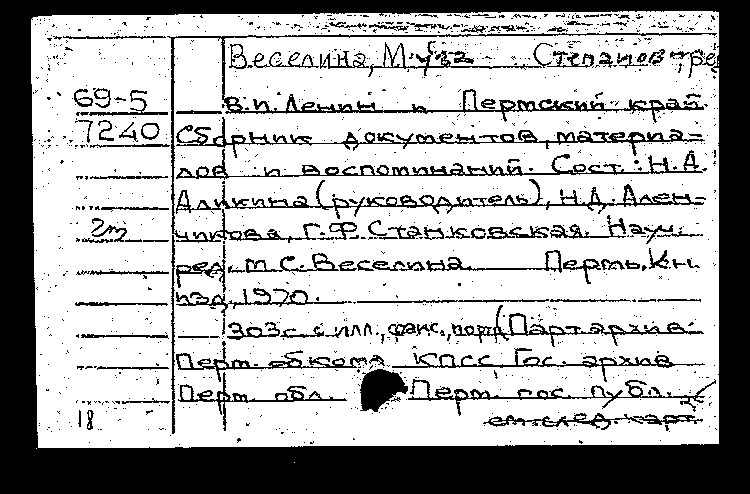 Веселина, М. Степанов ред
69-5 В.И. Ленин и Пермский край.
7240 Сборник документов, материа-
лов и воспоминаний. Сост.: Н.А.
Аликина (руководитель), Н.Д. Ален-
2т чикова, Г.Ф. Станковская. Науч.
ред. М.С. Веселина. Пермь, Кн.
изд., 1970.
303с. с илл., факс., порт. (Парт. архив
Перм. обкома КПСС, Гос. архив
Перм. обл. Перм. гос. публ.
18 см. след. карт.